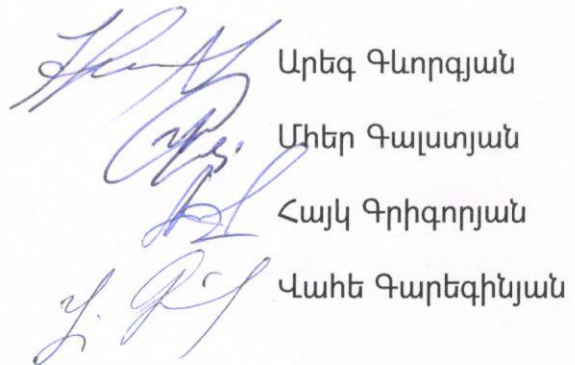 Արեգ Գևորգյան
Միեր Գալստյան
Հայկ Գրիգորյան
Վահե Գարեգինյան